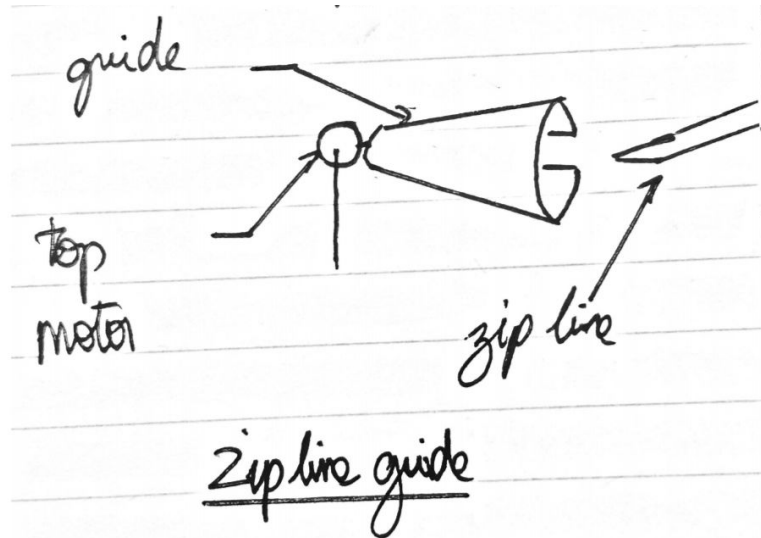 guide
top
motor
zip line
Zip line guide